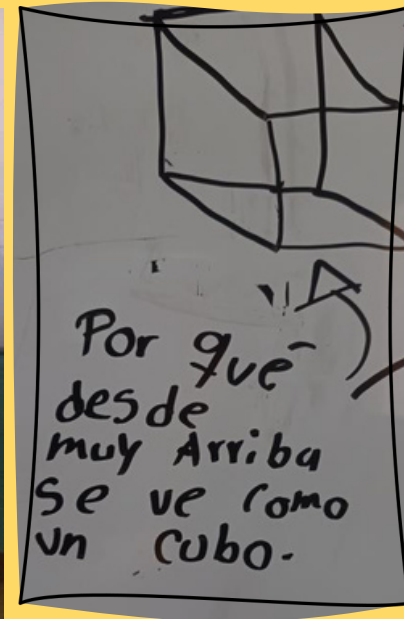 Por qué
desde
muy Arriba
se ve como
un cubo.